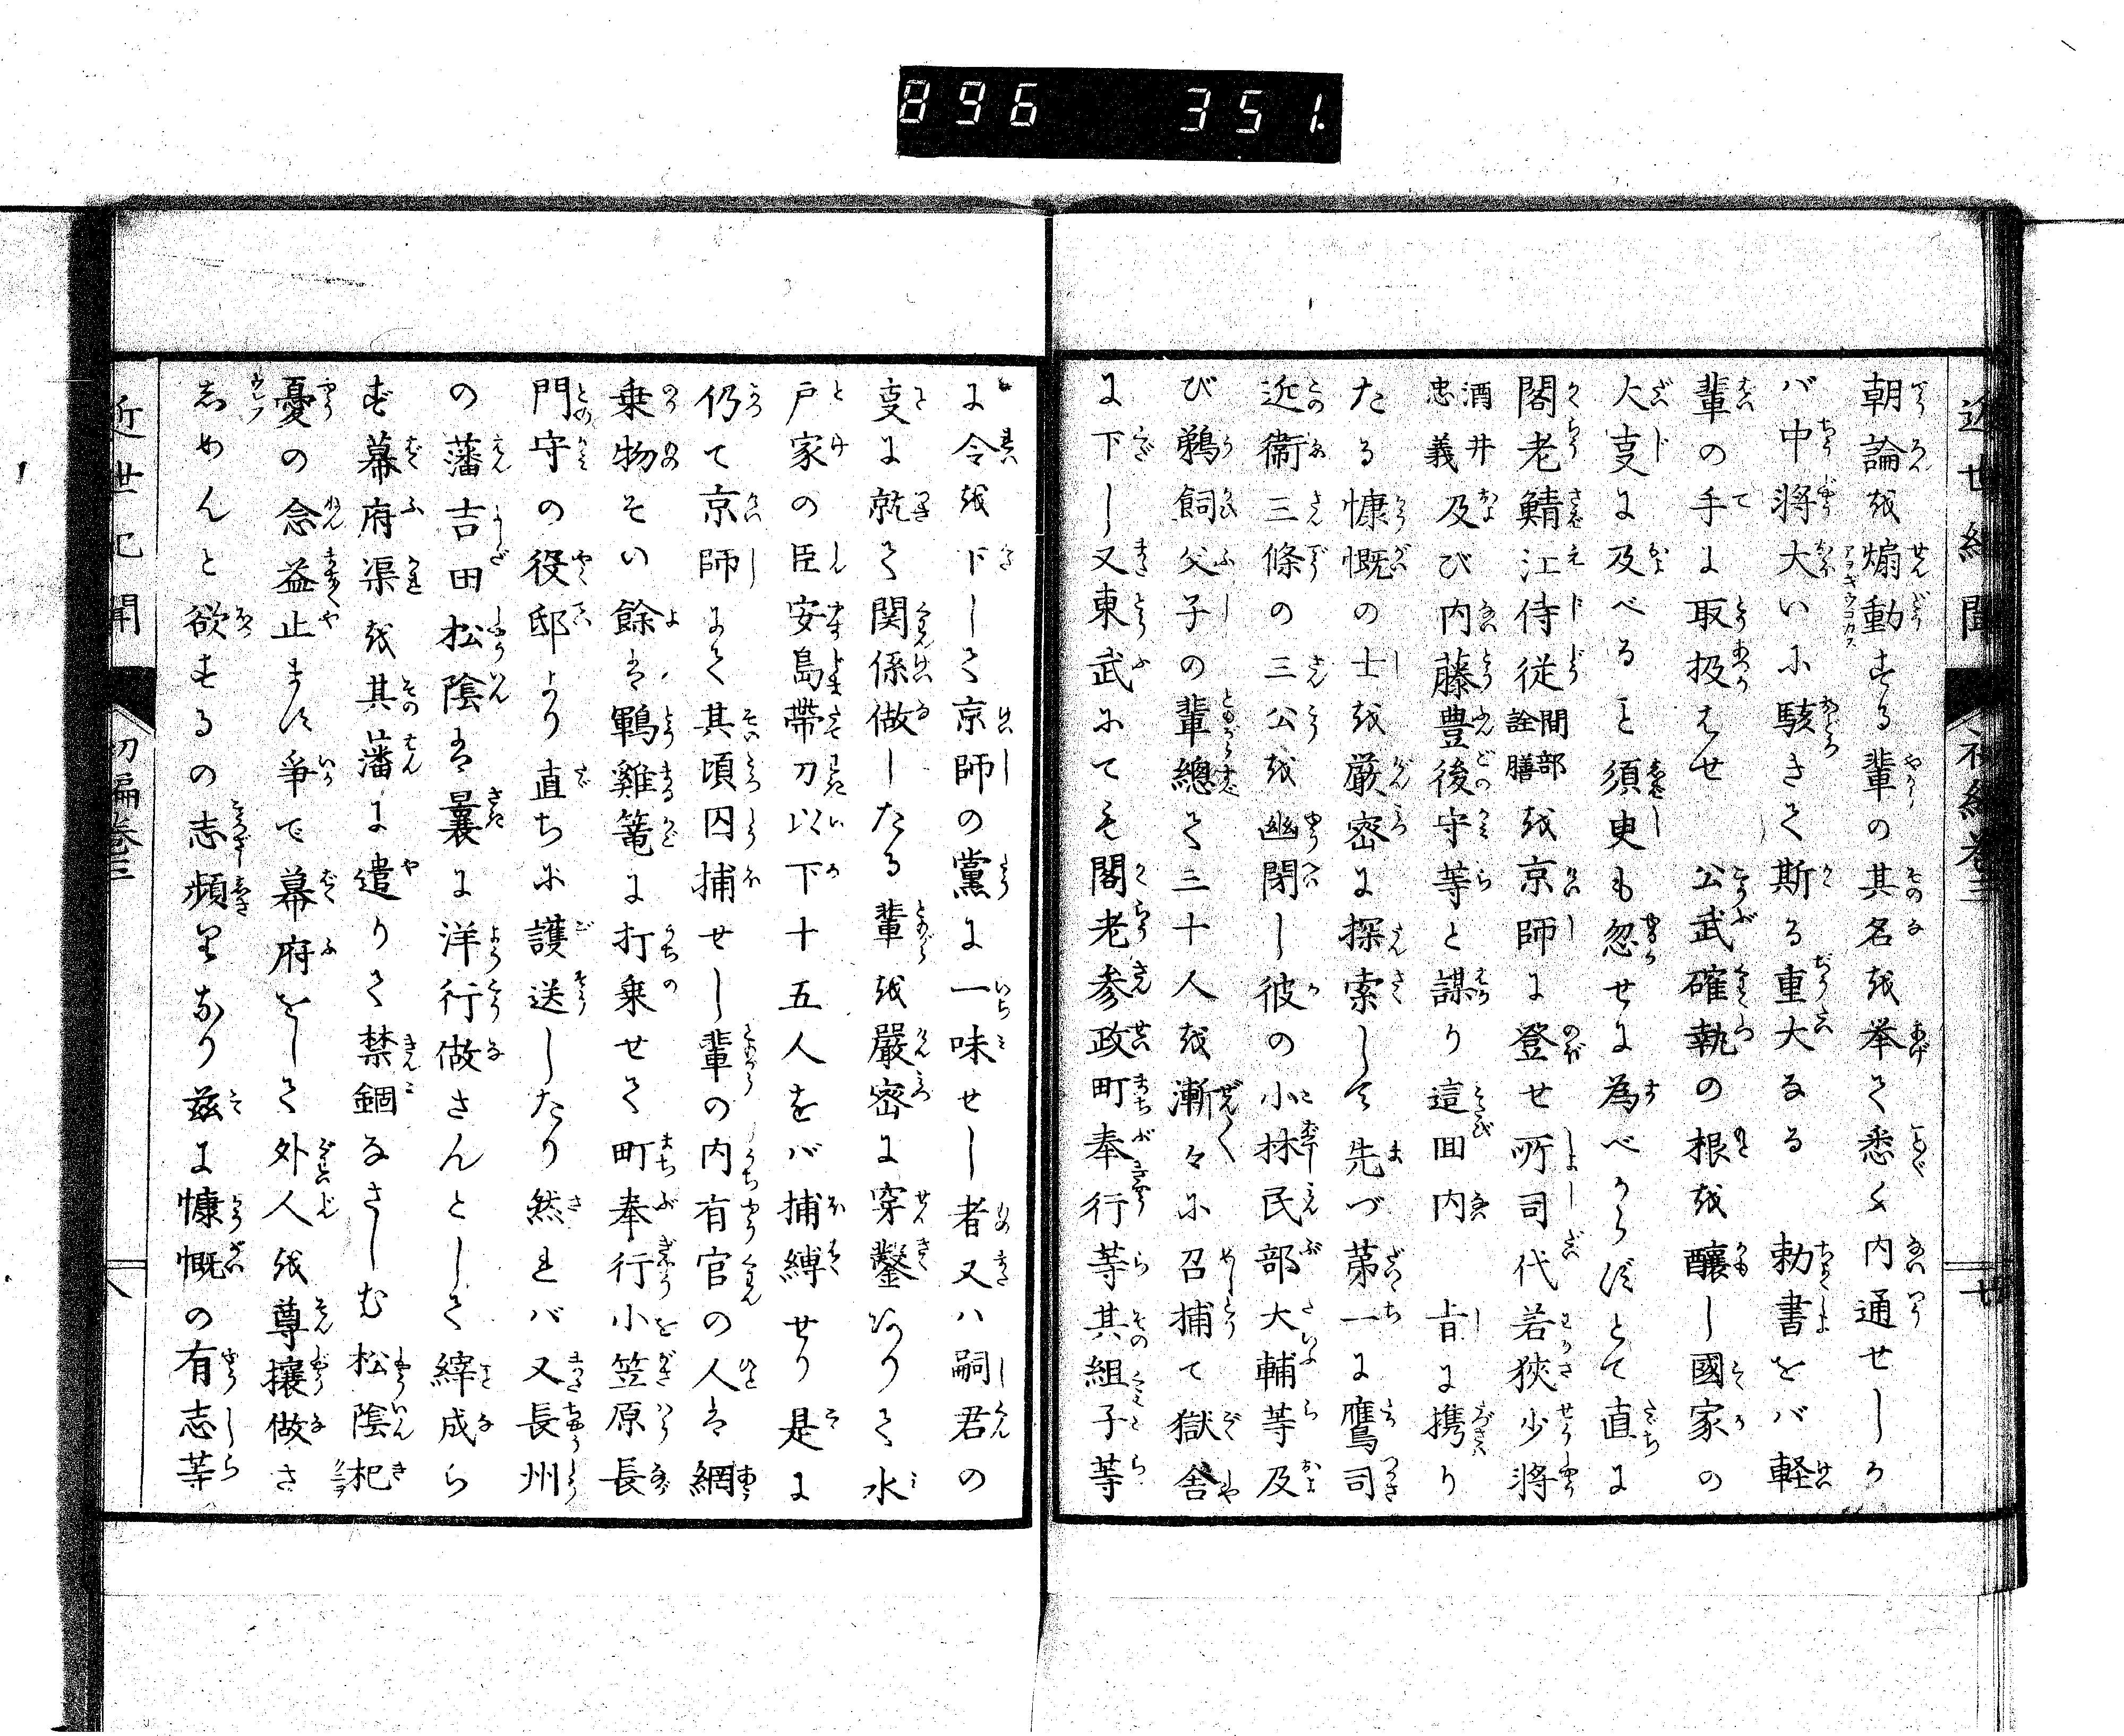 896 351.
近世紀聞 初編巻三
朝論を煽動する輩の其名を挙て悉く内通せしか
バ中将大いに駭きて斯る重大なる 勅書をバ軽
輩の手に取扱はせ 公武確執の根を醸し國家の
大事に及べること須臾も忽せに為べからずとて直に
閣老鯖江侍従間部詮勝を京師に登せ所司代若狹少将
酒井忠義及び内藤豊後守等と謀り這回内 旨に携り
たる慷慨の士を厳密に探索して先づ第一に鷹司
近衛三條の三公を幽閉し彼の小林民部大輔等及
び鵜飼父子の輩總て三十人を漸々に召捕て獄舎
に下し又東武にても閣老参政町奉行等其組子等
に令を下して京師の黨に一味せし者又ハ嗣君の
事に就て関係做したる輩を嚴密に穿鑿ありて水
戸家の臣安島帶刀以下十五人をバ捕縛せり是に
仍て京師にて其頃囚捕せし輩の内有官の人は網
乗物そい餘は鶤雞篭に打乗せて町奉行小笠原長
門守の役邸より直ちに護送したり然れバ又長州
の藩吉田松陰は曩に洋行做さんとして縡成ら
ず幕府渠を其藩に遣りて禁錮なさしむ松陰杞
憂の念益止まず爭で幕府をして外人を尊攘做さ
しめんと欲するの志頻りなり茲に慷慨の有志等
近世紀聞 初編巻三 八